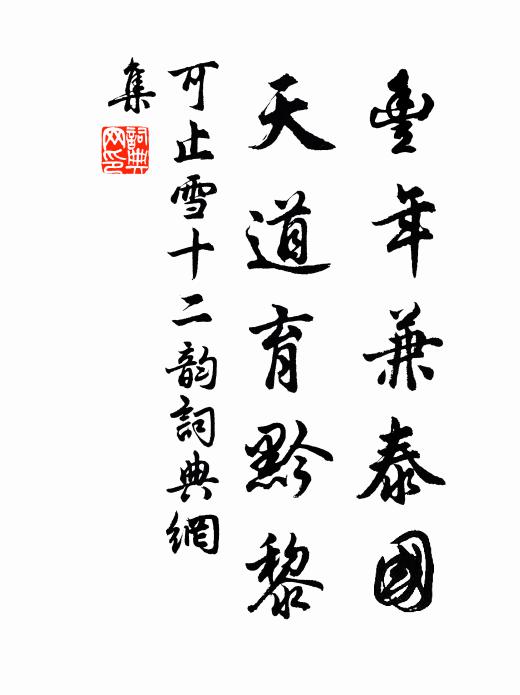 豐年兼泰國
天道育黔黎
可止雪十二韵詞典網
集
詞典網印